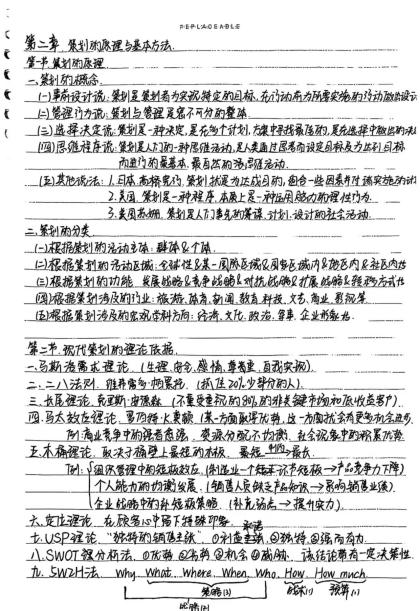 REPLACEABLE
第二章 策划的原理与基本方法
第一节 策划的原理
一、策划的概念
(一)事前设计说:策划是策划者为实现特定的目标,在行动前为所需实施的行动做出设计
(二)管理行为说:策划与管理是密不可分的整体
(三)选择决定说:策划是一种决定,是在多个计划、方案中寻找最佳的,是在选择中做出的决
(四)思维程序说:策划是人们的一种思维活动,是人类通过思考而设定目标及为达到目标
而进行的最基本、最自然的思维活动
(五)其他说法:1.日本:策划就是为达成目的,组合一些因素并付诸实施的
2.美国:策划是一种程序,本质上是一种运用脑力的理性行为
3.美国苏珊:策划是人们事先的筹谋、计划、设计的社会活动
二、策划的分类
(一)根据策划的活动主体:群体&个体
(二)根据策划的活动区域:全球性&某一国际区域&国家区域内&地区内&社区内性
(三)根据策划的功能:发展战略&竞争战略&对抗战略&扩展战略&
(四)根据策划涉及的行业:旅游、体育、新闻、教育、科技、文艺、商业、影视等
(五)根据策划涉及的宏观学科方向:经济、文化、政治、军事、企业形象&
第二节 现代策划的理论依据
一、马斯洛需求理论(生理、安全、感情、尊重、自我实现)
二、二八法则 维弗雷多·帕累托(抓住20%少部分的人)
三、长尾理论 克里斯·安德森(不重要重视的80%的非关键市场和低收益客户)
四、马太效应理论 罗伯特·默顿(某一方面取得优势,这一方面就会有更多机会进步
例:商业竞争中的强者愈强、资源分配不均衡、社会现象中的积累优势
五、木桶理论 取决于桶壁上最短的木板 最短→最长
例:团队管理中的短板效应(制造业一个结束环节短板→产品竞争力下降)
个人能力的均衡发展(销售人员缺乏产品知识→影响销售业绩)
企业战略中的补短板策略(补充弱点→提升实力)
六、定位理论 在顾客心中留下特殊印象
七、USP理论 "独特的销售主张" ①利益承诺②独特③强而有力
八、SWOT强分析法 ①优势②劣势③机会④威胁 该结论带有一定决策性
九、5W2H法 Why What Where When Who How How much
策略(3) 战术(1) 预算(1)